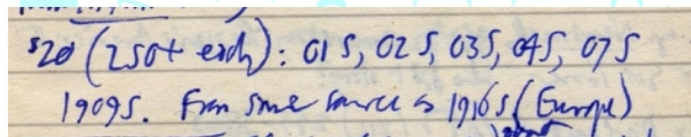 $20 (250+ each): 01 S, 02 S, 03 S, 04 S, 07 S
1909 S. From same source as 1916 S (Europe)